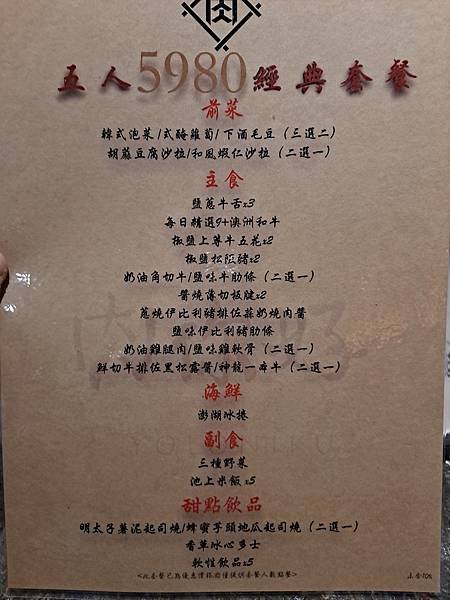 肉
五人5980經典套餐
前菜
韓式泡菜/式醃蘿蔔/下酒毛豆（三選二）
胡蔴豆腐沙拉/和風蝦仁沙拉（二選一）
主食
鹽蔥牛舌x3
每日精選9+澳洲和牛
椒鹽上等牛五花x2
椒鹽松阪豬x2
奶油角切牛/鹽味牛肋條（二選一）
醬燒薄切板腱x2
蔥燒伊比利豬排佐蒜奶燒肉醬
鹽味伊比利豬肋條
奶油雞腿肉/鹽味雞軟骨（二選一）
鮮切牛排佐黑松露醬/神龍一本牛（二選一）
海鮮
澎湖冰捲
副食
三種野菜
池上米飯x5
甜點飲品
明太子薯泥起司燒/蜂蜜芋頭地瓜起司燒（二選一）
香草冰心多士
軟性飲品x5
<此套餐已為優惠價格恕僅提供套餐人數點餐>